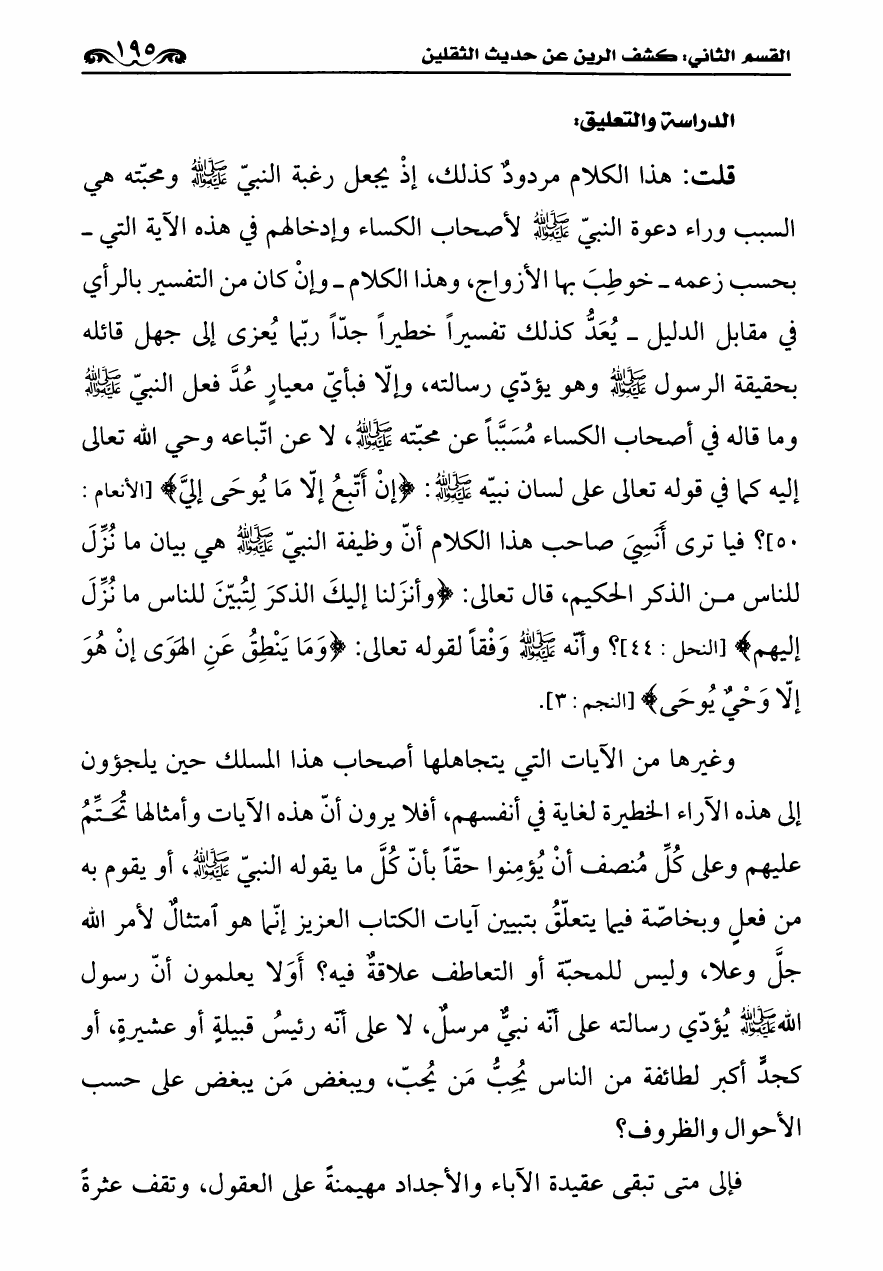 القسم الثاني: كشف الرين عن حديث الثقلين ١٩٥
الدراسة والتعليق:
قلت: هذا الكلام مردودٌ كذلك، إذْ يجعل رغبة النبيّ ﷺ ومحبّته هي
السبب وراء دعوة النبيّ ﷺ لأصحاب الكساء وإدخالهم في هذه الآية التي ـ
بحسب زعمه ـ خوطِبَ بها الأزواج، وهذا الكلام ـ وإنْ كان من التفسير بالرأي
في مقابل الدليل ـ يُعَدُّ كذلك تفسيراً خطيراً جدّاً ربّما يُعزى إلى جهل قائله
بحقيقة الرسول ﷺ وهو يؤدّي رسالته، وإلّا فبأيّ معيارٍ عُدَّ فعل النبيّ ﷺ
وما قاله في أصحاب الكساء مُسَبَّباً عن محبّته ﷺ، لا عن اتّباعه وحي الله تعالى
إليه كما في قوله تعالى على لسان نبيّه ﷺ: ﴿إنْ أَتَّبِعُ إلّا مَا يُوحَى إليَّ﴾ [الأنعام :
٥٠]؟ فيا ترى أَنَسِيَ صاحب هذا الكلام أنّ وظيفة النبيّ ﷺ هي بيان ما نُزِّلَ
للناس مـن الذكر الحكيم، قال تعالى: ﴿وأنزَلنا إليكَ الذكرَ لِتُبيّنَ للناس ما نُزِّلَ
إليهم﴾ [النحل : ٤٤]؟ وأنّه ﷺ وَفْقاً لقوله تعالى: ﴿وَمَا يَنْطِقُ عَنِ الهَوَى إنْ هُوَ
إلّا وَحْيٌ يُوحَى﴾ [النجم : ٣].
وغيرها من الآيات التي يتجاهلها أصحاب هذا المسلك حين يلجؤون
إلى هذه الآراء الخطيرة لغاية في أنفسهم، أفلا يرون أنّ هذه الآيات وأمثالها تُحَـتِّمُ
عليهم وعلى كُلِّ مُنصف أنْ يُؤمِنوا حقّاً بأنّ كُلَّ ما يقوله النبيّ ﷺ، أو يقوم به
من فعلٍ وبخاصّة فيما يتعلّقُ بتبيين آيات الكتاب العزيز إنّما هو ٱمتثالٌ لأمر الله
جلَّ وعلا، وليس للمحبّة أو التعاطف علاقةٌ فيه؟ أَوَلا يعلمون أنّ رسول
الله ﷺ يُؤدّي رسالته على أنّه نبيٌّ مرسلٌ، لا على أنّه رئيسُ قبيلةٍ أو عشيرةٍ، أو
كجدٍّ أكبر لطائفة من الناس يُحِبُّ مَن يُحبّ، ويبغض مَن يبغض على حسب
الأحوال والظروف؟
فإلى متى تبقى عقيدة الآباء والأجداد مهيمنةً على العقول، وتقف عثرةً